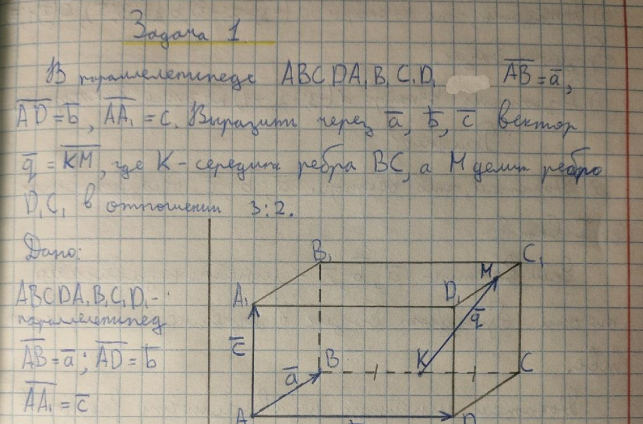 Задача 1
В параллелепипеде ABCDA₁B₁C₁D₁ AB̅=a̅,
A̅D̅=b̅, A̅A̅₁=c. Выразить через a̅, b̅, c̅ вектор
q̅ = K̅M̅, где K-середина ребра BC, а M делит ребро
D₁C₁ в отношении 3:2.
Дано:
ABCDA₁B₁C₁D₁-
параллелепипед
A̅B̅=a̅; A̅D̅=b̅
A̅A̅₁=c̅
B₁
C₁
M
A₁
D₁
q̅
c̅
a̅
B
K
C
A
D